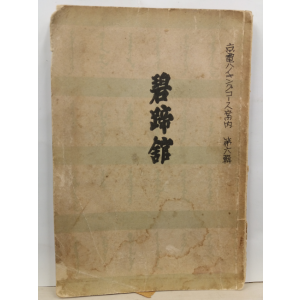 京電ハイキングコース案内 第六輯
碧蹄舘